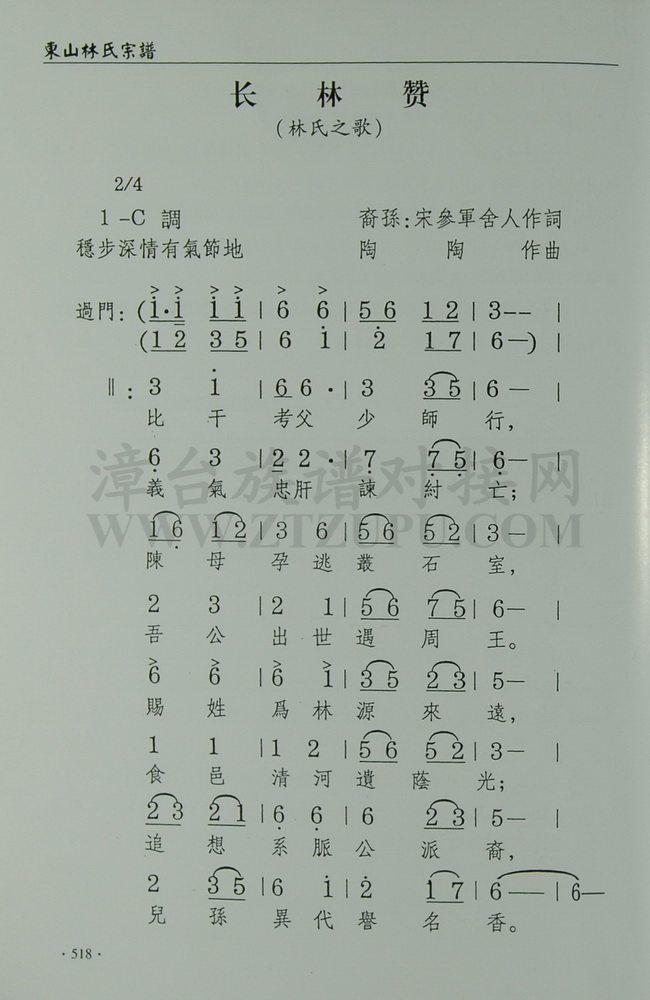 東山林氏宗譜
长林赞
(林氏之歌)
2/4
1-C 調 裔孫:宋參軍舍人作詞
穩步深情有氣節地 陶陶作曲
過門:(1·1 1 1 | 6 6 | 5 6 1 2 | 3-- |
(1 2 3 5 | 6 1 | 2 1 7 | 6—) |
‖: 3 1 | 6 6 · | 3 3 5 | 6 — |
比干考父少師行,
6 3 | 2 2 · | 7 7 5 | 6— |
義氣忠肝諫紂亡;
1 6 1 2 | 3 6 | 5 6 5 2 | 3— |
陳母孕逃叢石室,
2 3 | 2 1 | 5 6 7 5 | 6— |
吾公出世遇周王。
6 6 | 6 1 | 3 5 2 3 | 5— |
賜姓爲林源來遠,
1 1 | 1 2 | 5 6 5 2 | 3— |
食邑清河遺蔭光;
2 3 2 1 | 6 6 | 6 2 3 | 5— |
追想系脈公派裔,
2 3 5 | 6 1 | 2 1 7 | 6—— | 6—
兒孫異代譽名香。
·518·
漳台族谱对接网
WWW.ZTZUPU.COM